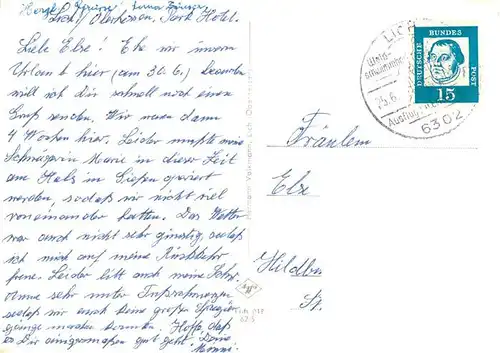 Herzl. Grüsse,
Lich, Oberhessen, Park Hotel.
Liebe Else! Ehe wir unsern
Urlaub hier (am 30.6.) beenden
will ich dir schnell noch einen
Gruß senden. Wir waren dann
4 Wochen hier. Leider mußte meine
Schwägerin Marie in dieser Zeit
am Hals in Gießen operiert
werden, sodaß wir nicht viel
voneinander hatten. Das Wetter
war auch nicht sehr günstig, sodaß
ich mich auf meine Rückkehr
freue. Leider litt auch meine
sehr unter
sodaß wir auch keine großen Spazier-
gänge machen konnten. Hoffe, daß
es Dir einigermaßen gut geht. Deine
LICH
25.6.
Ausflug
6302
DEUTSCHE BUNDESPOST
15
Fräulein
Else
Hildbur
St.